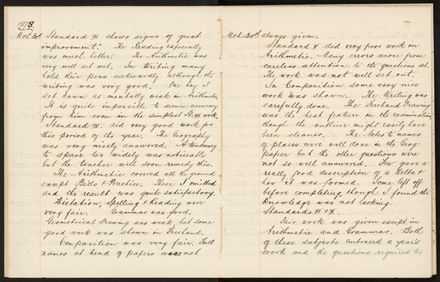 1898.
Oct. 30. Standard III shows signs of great
improvement. The Reading especially
was much better. The Arithmetic was
very well set out. In Writing many
hold their pens awkwardly although the
writing was very good. One boy is
set down as mentally weak in Arithmetic
It is quite impossible to secure accuracy
from him even in the simplest work
Standard IV did very good work for
this period of the year. The Geography
was very nicely answered. A tendency
to space too widely was noticeable
but the teacher will soon remedy this.
The Arithmetic covered all the ground
except Bills & Practice. These I omitted
and the result was quite satisfactory.
Dictation, Spelling & Reading were
very fair. Grammar was good.
Geometrical Drawing was weak but some
good work was shown in Freehand.
Composition was very fair. Full
names at head of papers were not
Oct. 30. always given.
Standard V did very poor work in
Arithmetic. Many errors arose from
careless attention to the questions set.
The work was not well set out.
In Composition some very nice
work was shown. The Writing was
carefully done. The Freehand Drawing
was the best feature in the examination
though the outlines might easily have
been cleaner. The Notes to names
of places were well done in the Geog.
papers but the other questions were
not so well answered. Few gave a
really good description of a Delta &
how it was formed. Some left off
before completing though I found the
knowledge was not lacking.
Standards VI & X.
Fair work was given except in
Arithmetic and Grammar. Both
of these subjects embraced a year's
work and the questions required to